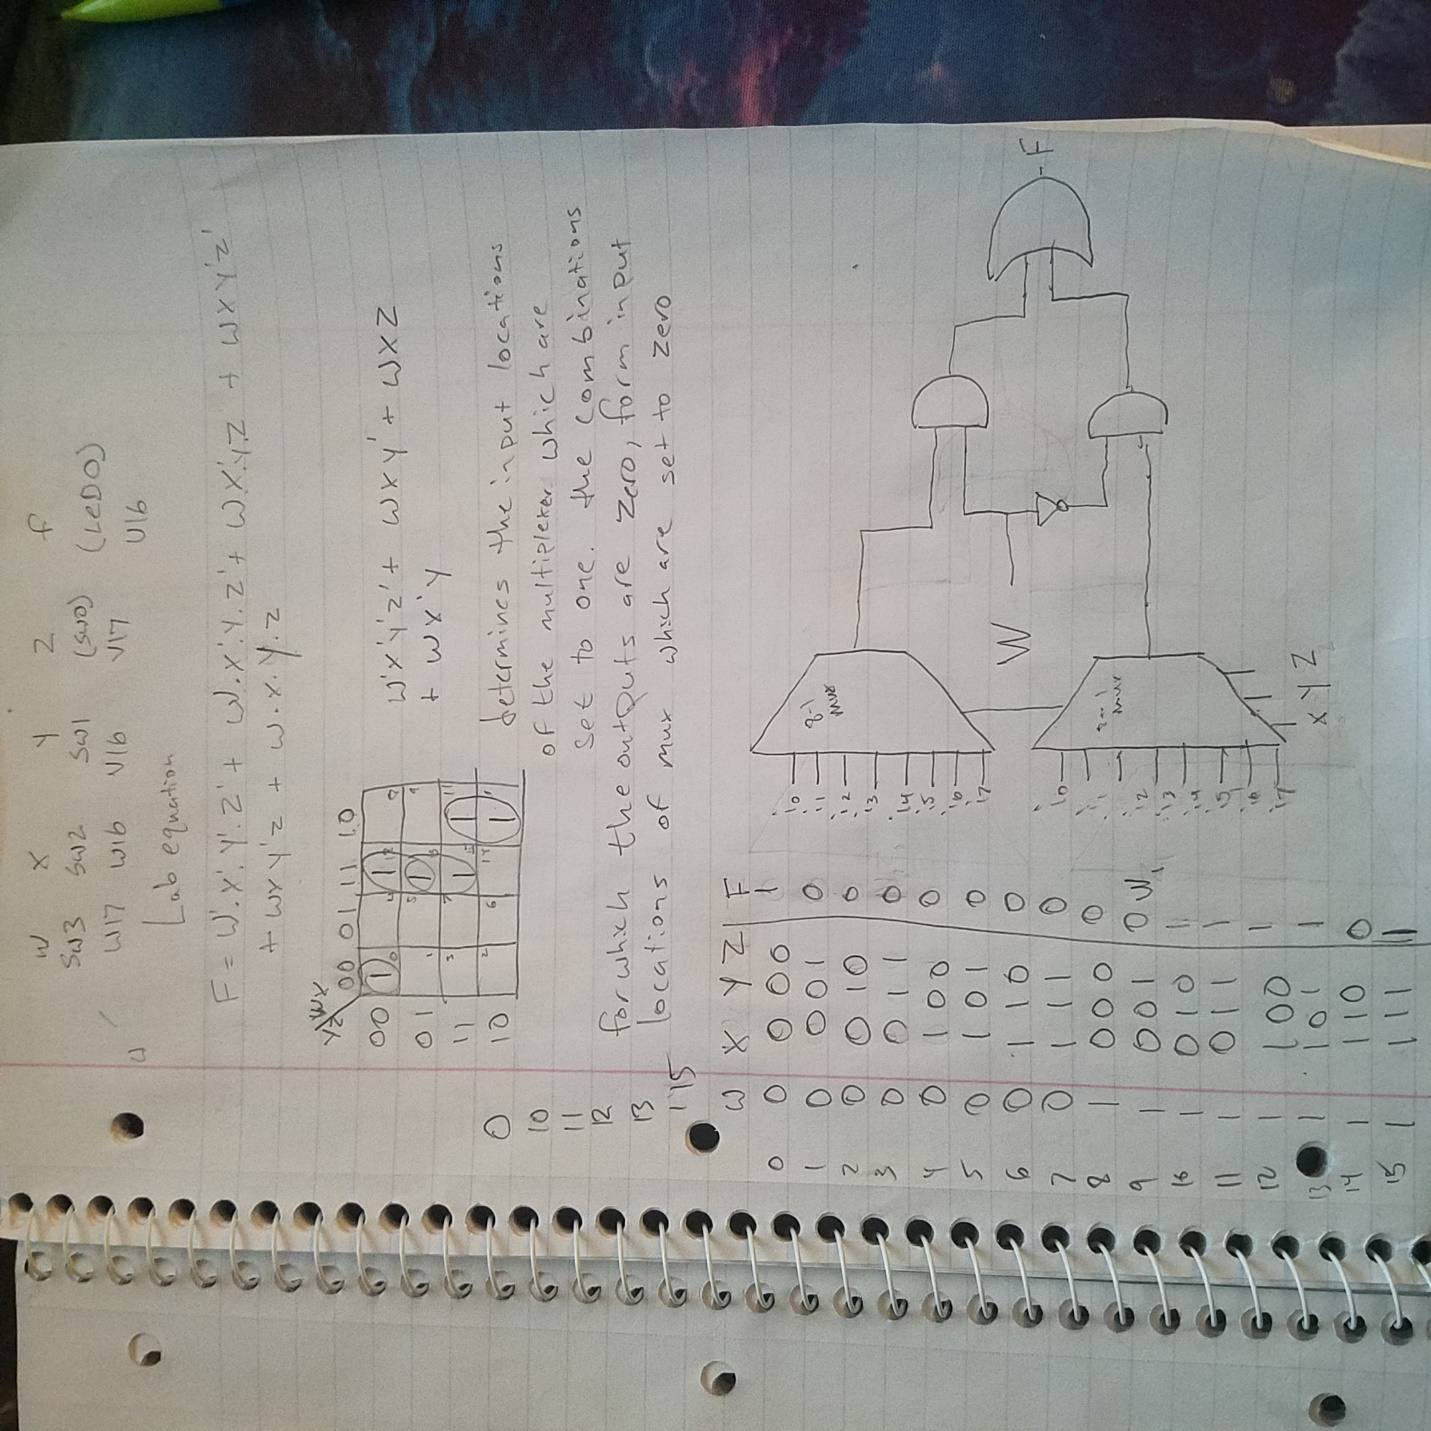 W X Y Z F
SW3 SW2 SW1 (SW0) (LED0)
W17 W16 V16 V17 U16
Lab equation
F = W'.X'.Y'.Z' + W.X'.Y.Z' + WX'.Y.Z + WXY'Z'
+ WXY'Z + W.X.Y.Z
YZ WX 00 01 11 10
00 1 0 4 1 12 8
01 1 5 1 13 9
11 3 7 1 15 1 11
10 2 6 14 1
W'X'Y'Z' + WXY' + WXZ
+ WX'Y
determines the input locations
of the multiplexer which are
set to one. the combinations
for which the outputs are zero, form input
locations of mux which are set to zero
0
10
11
12
13
15
W X Y Z F
0 0 0 0 0 1
1 0 0 0 1 0
2 0 0 1 0 0
3 0 0 1 1 0
4 0 1 0 0 0
5 0 1 0 1 0
6 0 1 1 0 0
7 0 1 1 1 0
8 1 0 0 0 0
9 1 0 0 1 0
10 1 0 1 0 1
11 1 0 1 1 1
12 1 1 0 0 1
13 1 1 0 1 1
14 1 1 1 0 0
15 1 1 1 1 1
8-1
mux
I0
I1
I2
I3
I4
I5
I6
I7
W
F
mux
I0
I1
I2
I3
I4
I5
I6
I7
X Y Z